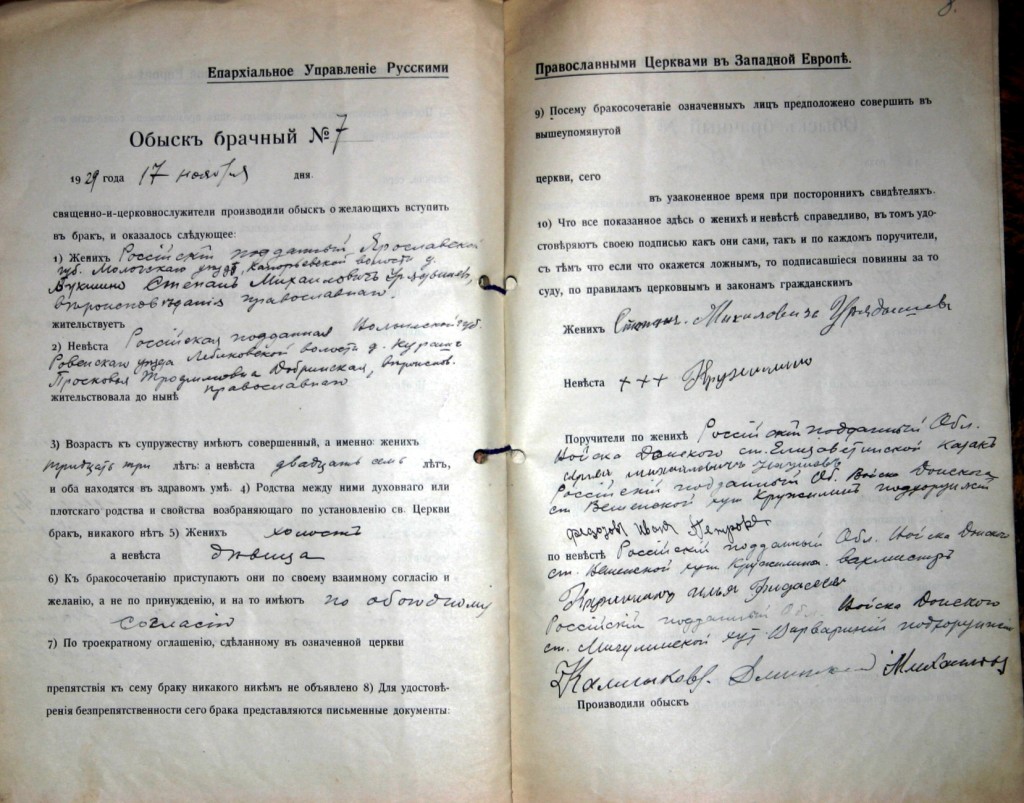 Епархіальное Управленіе Русскими
Обыскъ брачный № 7
1929 года 17 ноября дня.
священно-и-церковнослужители производили обыскъ о желающихъ вступить
въ бракъ, и оказалось слѣдующее:
1) Женихъ Россійскій подданный Ярославской
губ. Мологскаго уѣзда, волости д.
Степанъ Михаиловичъ
вѣроисповѣданія православнаго.
жительствуетъ
2) Невѣста Россійская подданная Волынской губ.
Ровенскаго уѣзда волости д.
Просковья Трофимовна Добринская, вѣроиспов.
православнаго
жительствовала до нынѣ
3) Возрастъ къ супружеству имѣютъ совершенный, а именно: женихъ
тридцать три лѣтъ: а невѣста двадцать семь лѣтъ,
и оба находятся въ здравомъ умѣ. 4) Родства между ними духовнаго или
плотскаго родства и свойства возбраняющаго по установленію св. Церкви
бракъ, никакого нѣтъ 5) Женихъ холостъ
а невѣста дѣвица
6) Къ бракосочетанію приступаютъ они по своему взаимному согласію и
желанію, а не по принужденію, и на то имѣютъ по обоюдному
согласію
7) По троекратному оглашенію, сдѣланному въ означенной церкви
препятствія къ сему браку никакого никѣмъ не объявлено 8) Для удостовѣ-
ренія безпрепятственности сего брака представляются письменные документы:
8.
Православными Церквами въ Западной Европѣ.
9) Посему бракосочетаніе означенныхъ лицъ предположено совершить въ
вышеупомянутой
церкви, сего
въ узаконенное время при постороннихъ свидѣтеляхъ.
10) Что все показанное здѣсь о женихѣ и невѣстѣ справедливо, въ томъ удо-
стовѣряютъ своею подписью какъ они сами, такъ и по каждомъ поручители,
съ тѣмъ что если что окажется ложнымъ, то подписавшіеся повинны за то
суду, по правиламъ церковнымъ и законамъ гражданскимъ
Женихъ
Невѣста +++
Поручители по женихѣ Россійскій подданный Обл.
Войска Донского ст. Елизаветинской казакъ
Россійскій подданный Об. Войска Донского
ст. Вешенской хут. Кружилинъ подхорунжій
Иванъ
по невѣстѣ Россійскій подданный Обл. Войска Донского
ст. Вешенской хут. Кружилинъ вахмистръ
Илья
Россійскій подданный Обл. Войска Донского
ст. Мигулинской хут. подхорунжій
Калмыковъ
Производили обыскъ